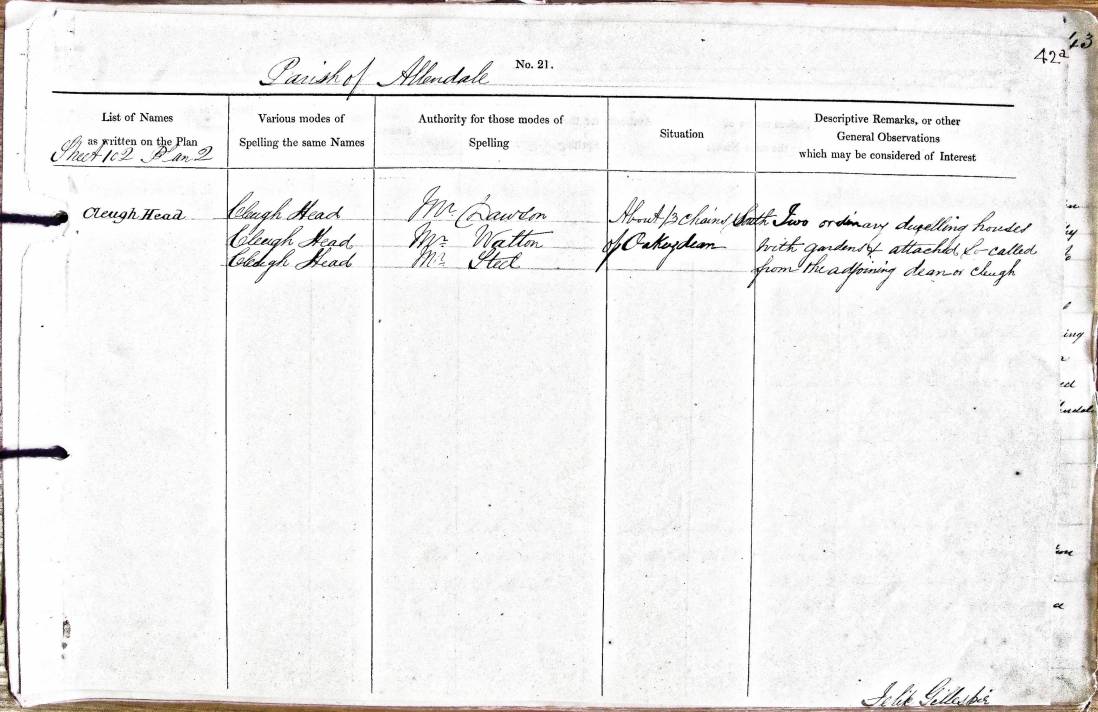 43
42a
No. 21.
Parish of Allendale
List of Names
as written on the Plan
Sheet 102 Plan 2
Various modes of
Spelling the same Names
Authority for those modes of
Spelling
Situation
Descriptive Remarks, or other
General Observations
which may be considered of Interest
Cleugh Head
Cleugh Head
Cleugh Head
Cleugh Head
Mr. Dawson
Mr. Watton
Mr. Steel
About 13 chains South
of Oakeydean
Two ordinary dwelling houses
with gardens & attached, So-called
from the adjoining dean or cleugh
ing
ed
Felix Gillespie